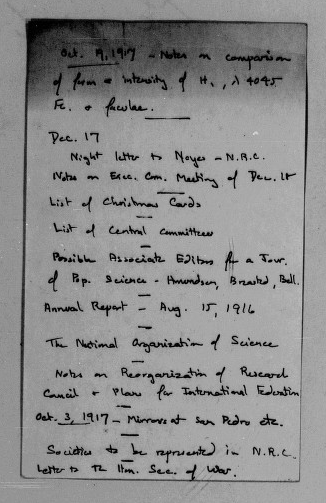 Oct. 9, 1917 - Notes on comparison
of form & intensity of H., λ 4045
Fe. & faculae.
Dec. 17
Night letter to Noyes - N.R.C.
Notes on Exec. Com. Meeting of Dec. 18
List of Christmas Cards
List of Central Committees
Possible Associate Editors for a Jour.
of Pop. Science - Amundsen, Breasted, Ball.
Annual Report - Aug. 15, 1916
The National Organization of Science
Notes on Reorganization of Research
Council & Plans for International Federation
Oct. 3, 1917 - Mirrors at San Pedro etc.
Societies to be represented in N.R.C.
Letter to The Hon. Sec. of War.